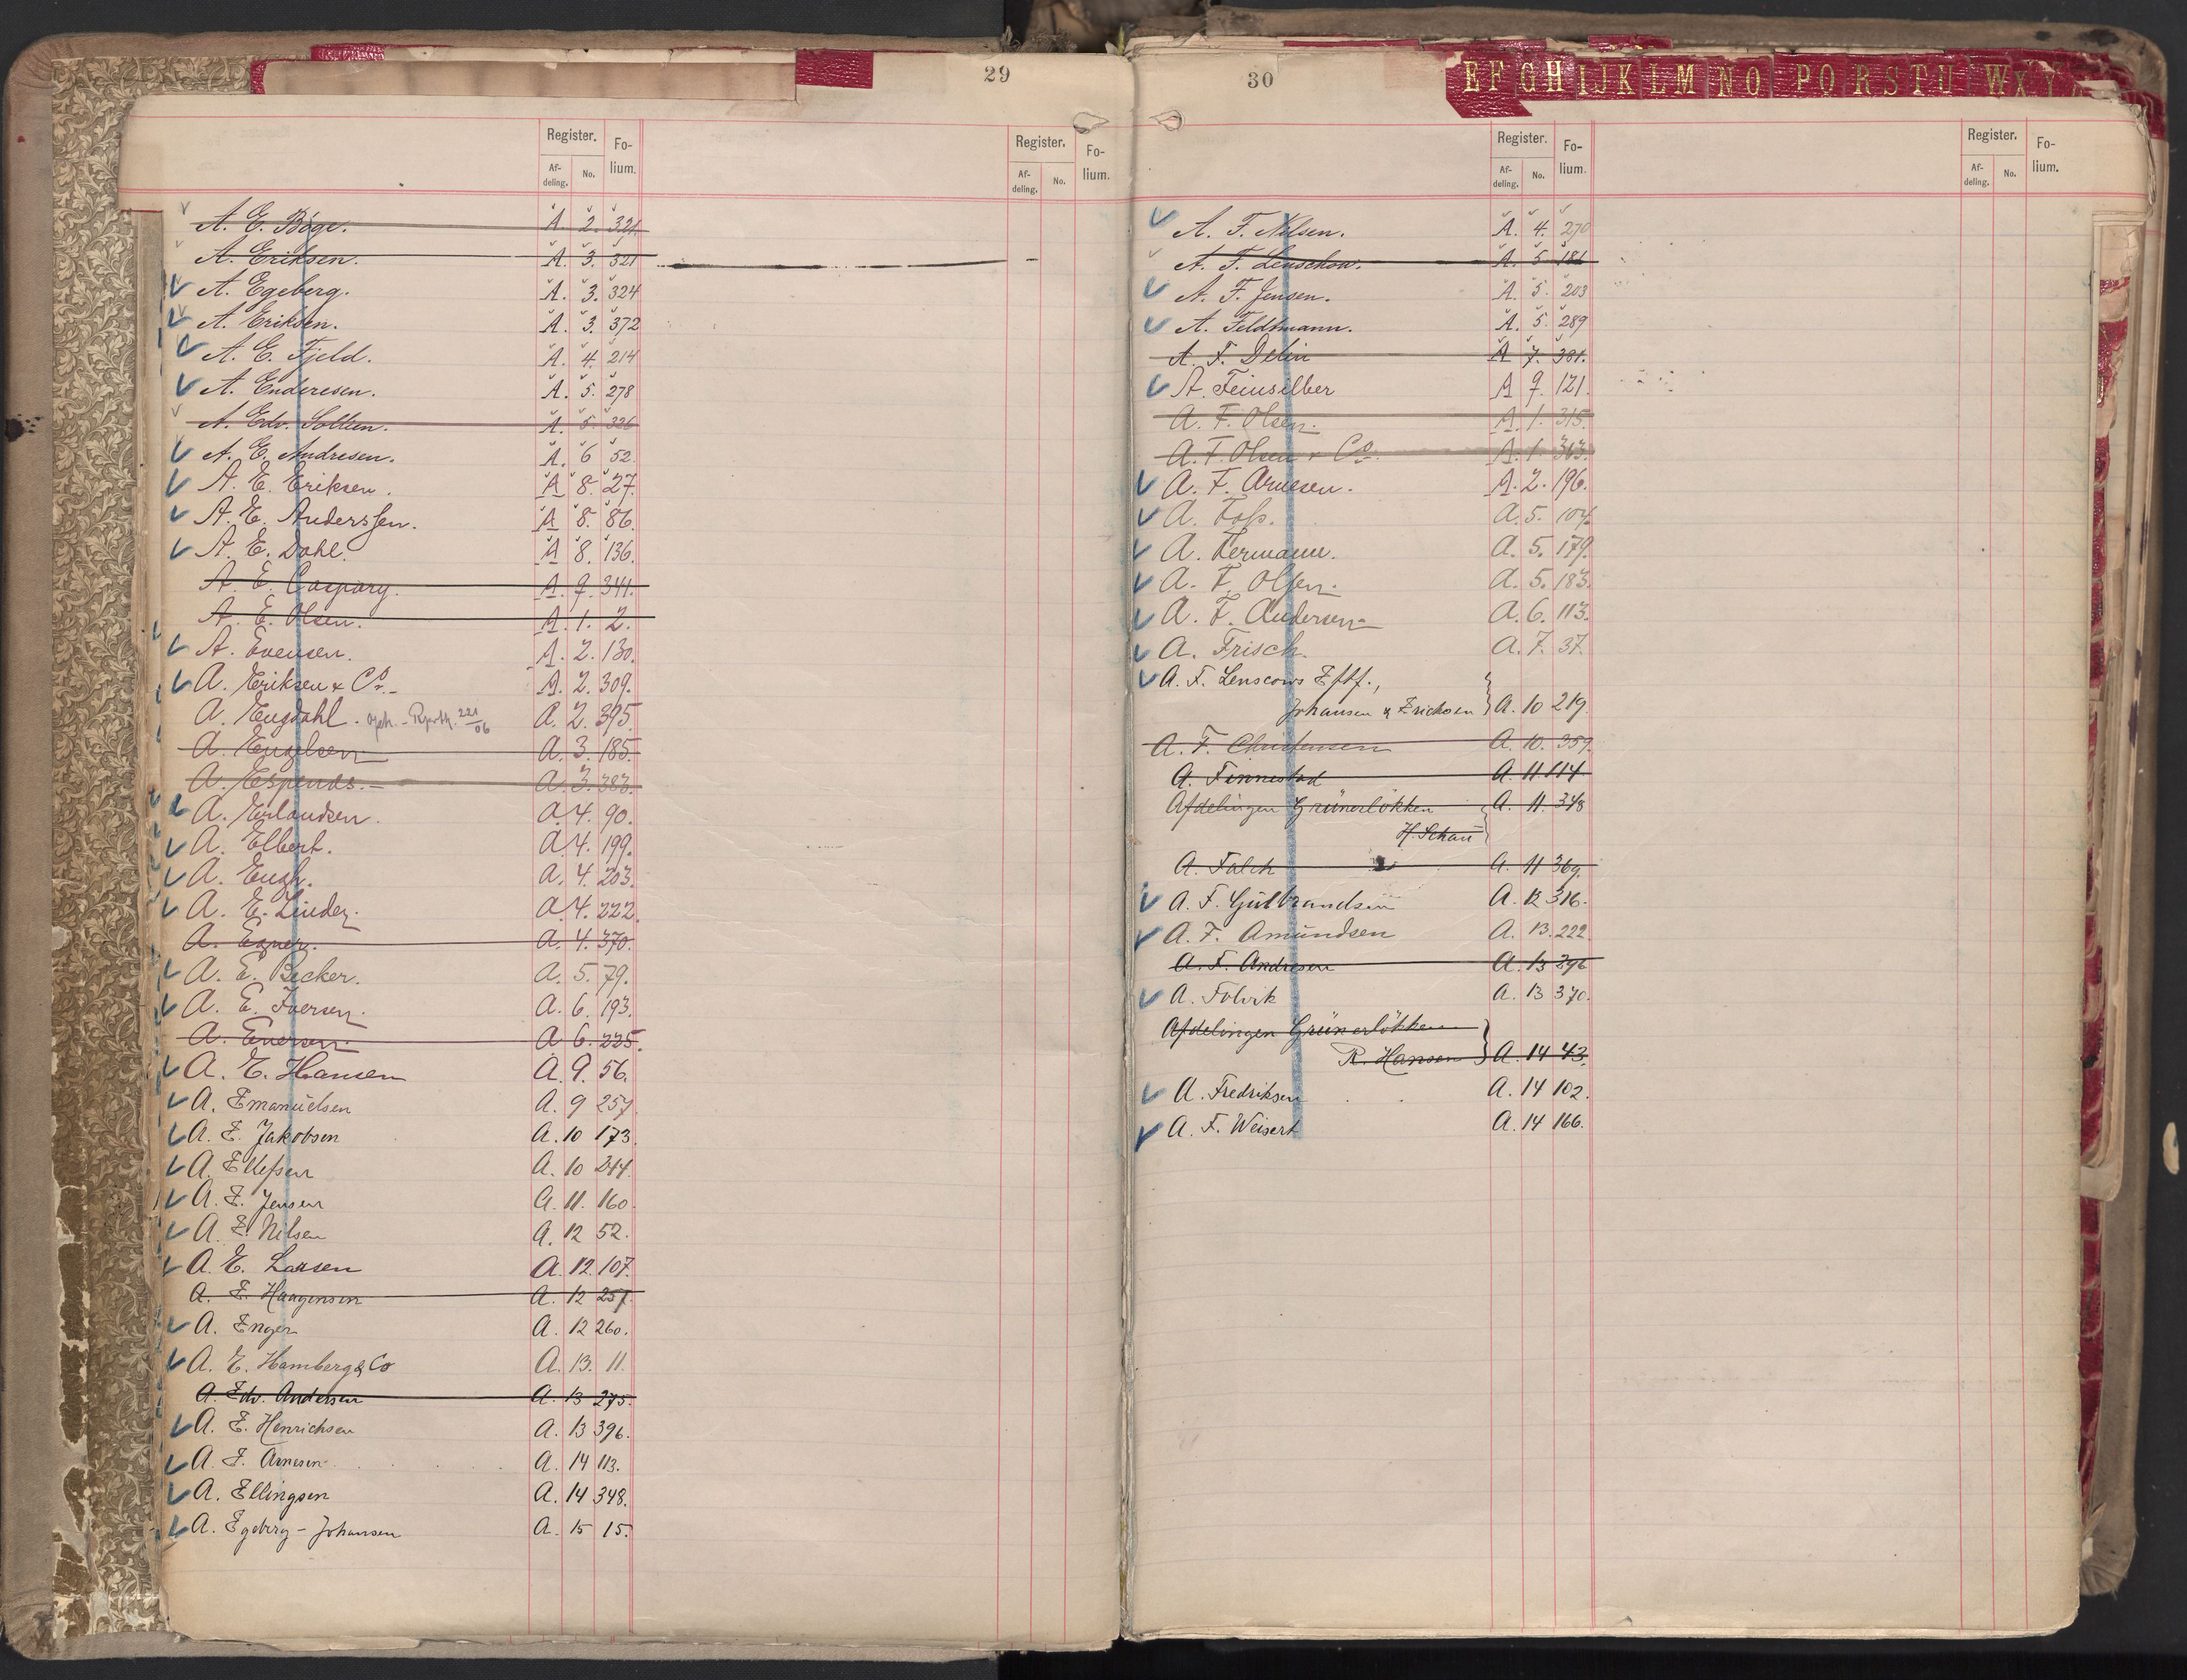 29
Register. Fo-
lium.
Af-
deling. No.
Register. Fo-
lium.
Af-
deling. No.
A. E. Böge. A. 2. 321.
A. Eriksen. A. 3. 321
A. Egeberg. A. 3. 324
A. Eriksen. A. 3. 372
A. E. Fjeld. A. 4. 214
A. Enderesen. A. 5. 278
A. Edv. Soltten. A. 5. 326
A. E. Andresen. A. 6 52.
A. E. Eriksen. A 8. 27.
A. E. Anderssen. A 8. 86.
A. E. Dahl. A 8. 136.
A. E. Caspary. A. 9. 341.
A. E. Olsen. A. 1. 2.
A. Evensen. A. 2. 130.
A. Eriksen & Co. A. 2. 309.
A. Engdahl. A. 2. 395.
A. Engelsen A. 3. 185.
A. Espenas. A. 3. 383.
A. Erlandsen. A. 4. 90.
A. Elbert. A. 4. 199.
A. Engh. A. 4. 203.
A. E. Linder. A. 4. 222.
A. Egner. A. 4. 370.
A. E. Becker. A. 5. 79.
A. E. Iversen. A. 6. 193.
A. Enersen. A. 6. 225.
A. E. Hansen A. 9. 56.
A. Emanuelsen A. 9 257.
A. E. Jakobsen A. 10 173
A. Ellefsen A. 10 244.
A. E. Jensen A. 11. 160.
A. E. Nilsen A. 12 52.
A. E. Larsen A. 12. 107.
A. E. Haagensen A. 12 257.
A. Enger A. 12 260.
A. E. Hamberg & Co A. 13. 11.
A. Edv. Andersen A. 13 275.
A. E. Henrichsen A. 13 396.
A. E. Arnesen A. 14 113.
A. Ellingsen A. 14 348.
A. Egeberg - Johansen A. 15 15.
30
EFGHIJKLMNOPQRSTUWXY
Register. Fo-
lium.
Af-
deling. No.
Register. Fo-
lium.
Af-
deling. No.
A. F. Nilsen. A. 4. 270
A. F. Lenschow. A. 5 181
A. F. Jensen. A. 5. 203
A. Feldtmann. A. 5. 289
A. F. Delin A 7. 381.
A. Feinselber A 9. 121.
A. F. Olsen. A. 1. 315.
A. F. Olsen & Co. A. 1. 363.
A. F. Arnesen. A. 2. 196.
A. Foss. A. 5. 104.
A. Fermann. A. 5. 179.
A. F. Olsen. A. 5. 183.
A. F. Andersen A. 6. 113.
A. Frisch. A. 7. 37.
A. F. Lenscows Eftf.,
Johansen & Erichsen A. 10 219.
A. F. Christensen A. 10. 359.
A. Finnestad A. 11 114.
Afdelingen Grünerlökken A. 11. 348
H. Schau
A. Falch A. 11 369.
A. F. Gulbrandsen A. 12 316.
A. F. Amundsen A. 13. 222.
A. F. Andresen A. 13 296
A. Folvik A. 13 370.
Afdelingen Grünerlökken
R. Hansen A. 14 43.
A. Fredriksen A. 14 102.
A. F. Weisert A. 14 166.